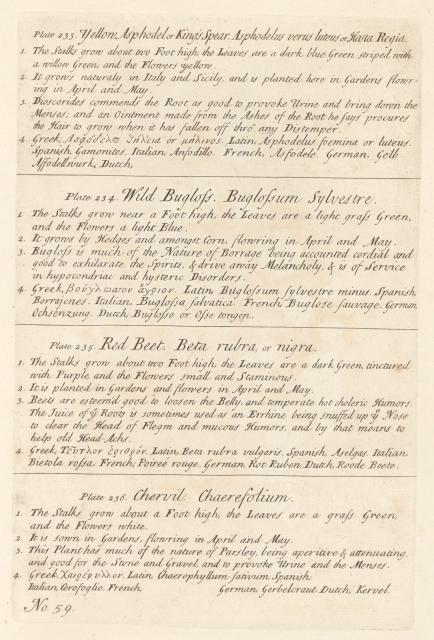 Plate 233. Yellow Asphodel or King's Spear. Asphodelus verus luteus or Hasta Regia.
1. The Stalks grow about two Foot high, the Leaves are a dark blue Green striped with
a willow Green, and the Flowers yellow.
2. It grows naturaly in Italy and Sicily, and is planted here in Gardens flowr-
ing in April and May.
3. Dioscorides commends the Root as good to provoke Urine and bring down the
Menses; and an Ointment made from the Ashes of the Root he says procures
the Hair to grow when it has fallen off thro' any Distemper.
4. Greek, Latin, Asphodelus fœmina or luteus.
Spanish, Gamonites. Italian, Anfodillo. French, Asfodele. German, Gelb
Affodellwurk, Dutch,
Plate 234. Wild Bugloſs. Bugloſsum Sylvestre.
1. The Stalks grow near a Foot high, the Leaves are a light graſs Green,
and the Flowers a light Blue.
2. It grows by Hedges and amongst Corn, flowring in April and May.
3. Bugloſs is much of the Nature of Borrage being accounted cordial and
good to exhilarate the Spirits, & drive away Melancholy, & is of Service
in hypocondriac and hysteric Disorders.
4. Greek, Latin Bugloſsum sylvestre minus. Spanish,
Borrajenes. Italian. Bugloſsa salvatica. French, Buglose sauvage. German,
Ochsenzung. Dutch, Bugloſse or Oſse tongen.
Plate 235. Red Beet. Beta rubra, or nigra.
1. The Stalks grow about two Foot high, the Leaves are a dark Green, tinctured
with Purple, and the Flowers small and Staminous.
2. It is planted in Gardens and flowers in April and May.
3. Beets are esteem'd good to loosen the Belly, and temperate hot choleric Humors.
The Juice of yͤ Roots is sometimes used as an Errhine being snuffed up yͤ Nose
to clear the Head of Flegm and mucous Humors, and by that means to
help old Head Achs.
4. Greek, Τεῦτλον ἐριθρόν. Latin, Beta rubra vulgaris. Spanish, Aselgas. Italian
Bietola roſsa. French, Poireé rouge. German, Rot Ruben. Dutch, Roode Beete.
Plate 236. Chervil. Chaerefolium.
1. The Stalks grow about a Foot high, the Leaves are a graſs Green,
and the Flowers white.
2. It is sown in Gardens, flowring in April and May.
3. This Plant has much of the nature of Parsley, being aperitive & attenuating,
and good for the Stone and Gravel, and to provoke Urine and the Menses.
4. Greek, Χαιρέφυλλον. Latin, Chaerophyllum sativum. Spanish,
Italian, Cerofoglio. French, German, Gerbelcraut. Dutch, Kervel.
No. 59.